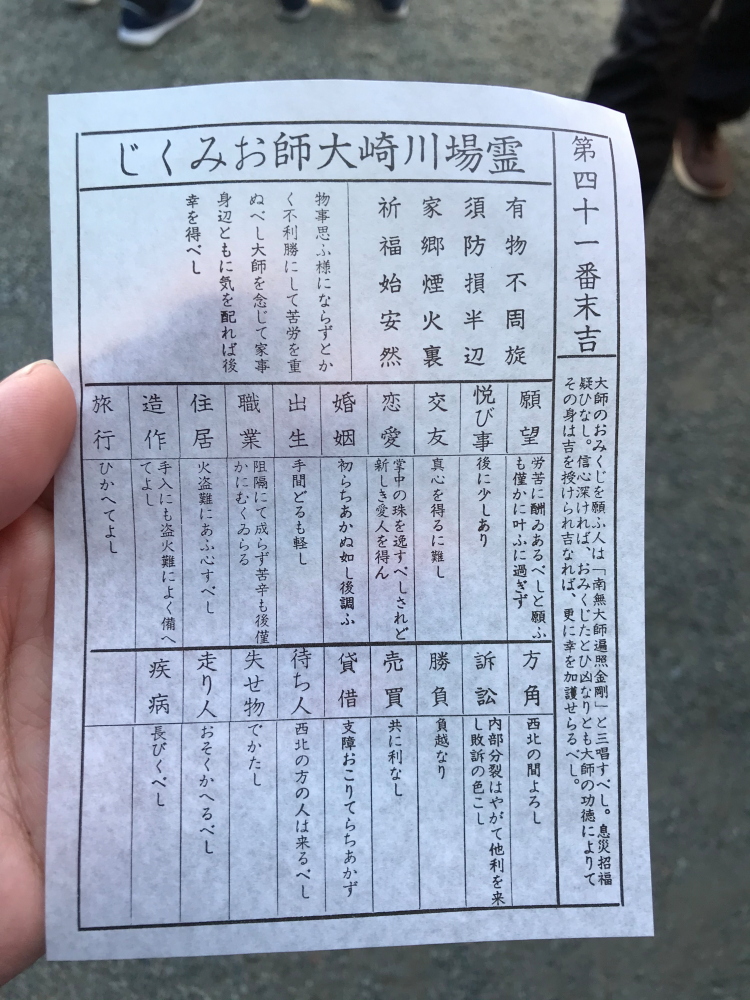 第四十一番末吉
大師のおみくじを願ふ人は「南無大師遍照金剛」と三唱すべし。息災招福
疑ひなし。信心深ければ、おみくじたとひ凶なりとも大師の功徳によりて
その身は吉を授けられ吉なれば、更に幸を加護せらるべし。
霊場川崎大師おみくじ
有物不周旋
須防損半辺
家郷煙火裏
祈福始安然
物事思ふ様にならずとか
く不利勝にして苦労を重
ぬべし大師を念じて家事
身辺ともに気を配れば後
幸を得べし
願望
労苦に酬ゐあるべしと願ふ
も僅かに叶ふに過ぎず
悦び事
後に少しあり
交友
真心を得るに難し
恋愛
掌中の珠を逸すべしされど
新しき愛人を得ん
婚姻
初らちあかぬ如し後調ふ
出生
手間どるも軽し
職業
阻隔にて成らず苦辛も後僅
かにむくゐらる
住居
火盗難にあふ心すべし
造作
手入にも盗火難によく備へ
てよし
旅行
ひかへてよし
方角
西北の間よろし
訴訟
内部分裂はやがて他利を来
し敗訴の色こし
勝負
負越なり
売買
共に利なし
貸借
支障おこりてらちあかず
待ち人
西北の方の人は来るべし
失せ物
でかたし
走り人
おそくかへるべし
疾病
長びくべし